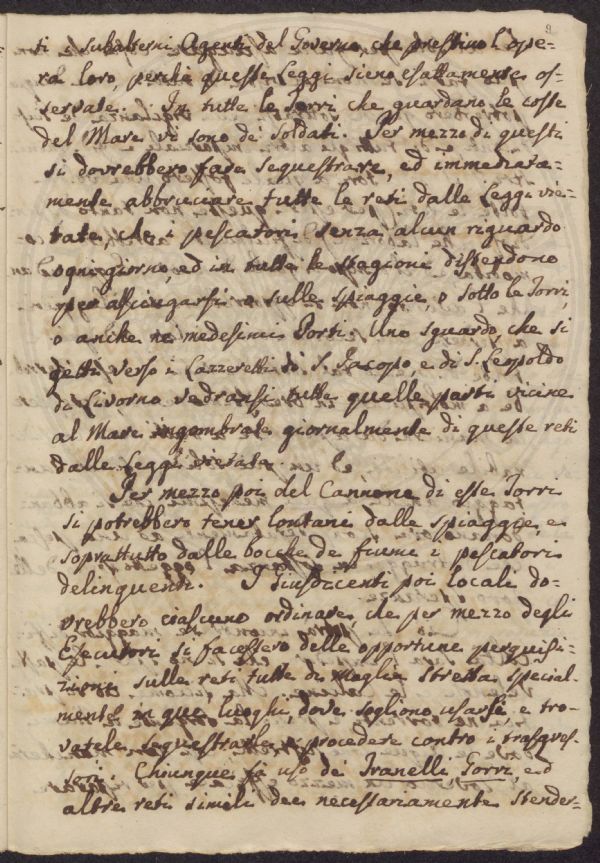 ti i subalterni Agenti del Governo, che prestino l'ope-
ra loro, perchè queste Leggi sieno esattamente os-
servate. In tutte le Torri che guardano le coste
del Mare vi sono de' soldati. Per mezzo di questi
si dovrebbero fare sequestrare, ed immediata-
mente abbruciare tutte le reti dalle Leggi vie-
tate, che i pescatori senza alcun riguardo
ogni giorno, ed in tutte le stagioni distendono
per asciugarsi o sulle spiaggie, o sotto le Torri,
o anche ne' medesimi Porti. Uno sguardo, che si
getti verso i Lazzeretti di S. Jacopo, e di S. Leopoldo
di Livorno vedransi tutte quelle parti vicine
al Mare ingombrate giornalmente di queste reti
dalle Leggi vietate.
Per mezzo poi del Cannone di esse Torri
si potrebbero tener lontani dalle spiaggie, e
soprattutto dalle bocche de' fiumi i pescatori
delinquenti. I Giusdicenti poi locali do-
vrebbero ciascuno ordinare, che per mezzo degli
Esecutori si facessero delle opportune perquisi-
zioni sulle reti tutte di maglia stretta special-
mente in que' luoghi, dove sogliono usarsi, e tro-
vatele, sequestrarle, e procedere contro i trasgres-
sori. Chiunque fà uso de' Tranelli, Gorri, ed
altre reti simili dee necessariamente stender-